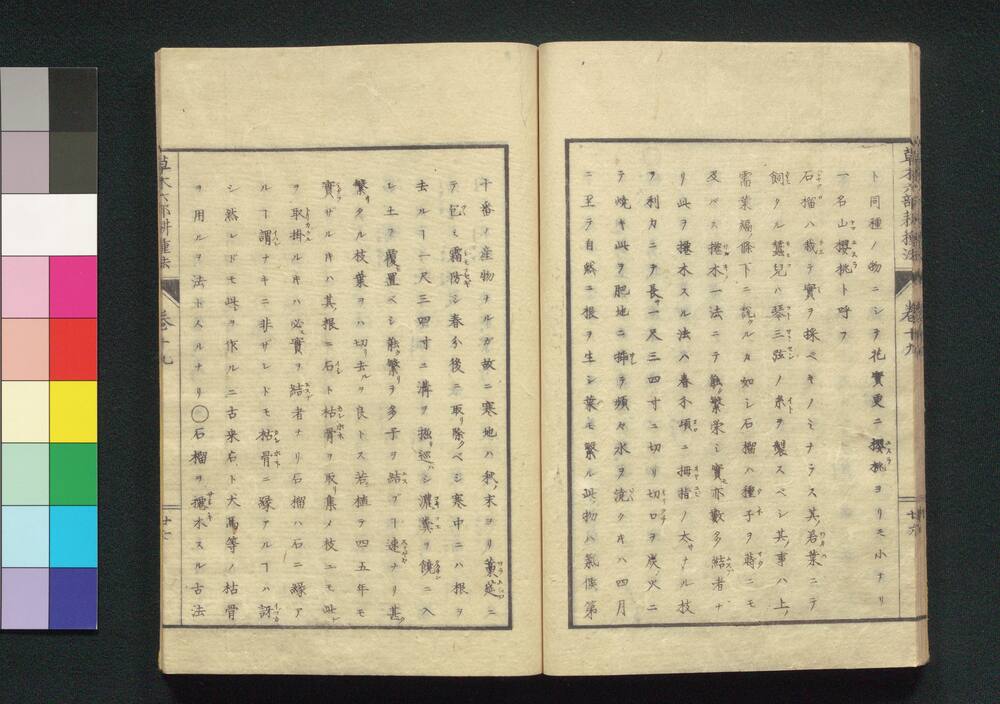 草木六部耕種法 巻十九
ト同種ノ物ニシテ花實更ニ櫻桃ヨリモ小ナリ
一名山櫻桃ト呼フ
石榴ハ栽テ實ヲ採ベキノミナラス其若葉ニテ
飼タル蠶兒ハ琴三弦ノ糸ヲ製スベシ其事ハ上ノ
需葉編ノ條下ニ説タルカ如シ石榴ハ種子ヲ蒔ニモ
及バス捲木一法ニテ能ク繁栄シ實亦數多結者ナ
リ此ヲ捲木スル法ハ春分頃ニ拇指ノ太サナル枝
ヲ利カニテ長サ一尺三四寸ニ切リ切口ヲ炭火ニ
テ焼キ此ヲ肥地ニ挿テ頻々水ヲ澆クキハ四月
ニ至テ自然ニ根ヲ生シ葉モ繁ル此物ハ氣候第
十六
十番ノ産物ナルガ故ニ寒地ハ秋末ヨリ藁筵ニ
テ包ミ霜防シ春分後ニ取除クベシ寒中ニハ根ヲ
去ルヿ一尺三四寸ニ溝ヲ掘巡シ濃糞ヲ饒ニ入
レ土ヲ覆置ベシ能ク繁リテ多子ヲ結ブヿ速ナリ甚ダ
繁タル枝葉ヲハ切去ルヲ良トス若シ植テ四五年モ
實ザルキハ其根ニ石ト枯骨ヲ取集メ枝ニモ此レ
ヲ取掛ルキハ必ス實ヲ結者ナリ石榴ハ石ニ縁ア
ルヿ謂ナキニ非ザレドモ枯骨ニ縁アルヿハ訝
シ然レドモ此ヲ作ルニ古来ヨリ犬馬等ノ枯骨
ヲ用ルヲ法ト爲ルナリ○石榴ヲ捲木スル古法
草木六部耕種法 巻十九
十七